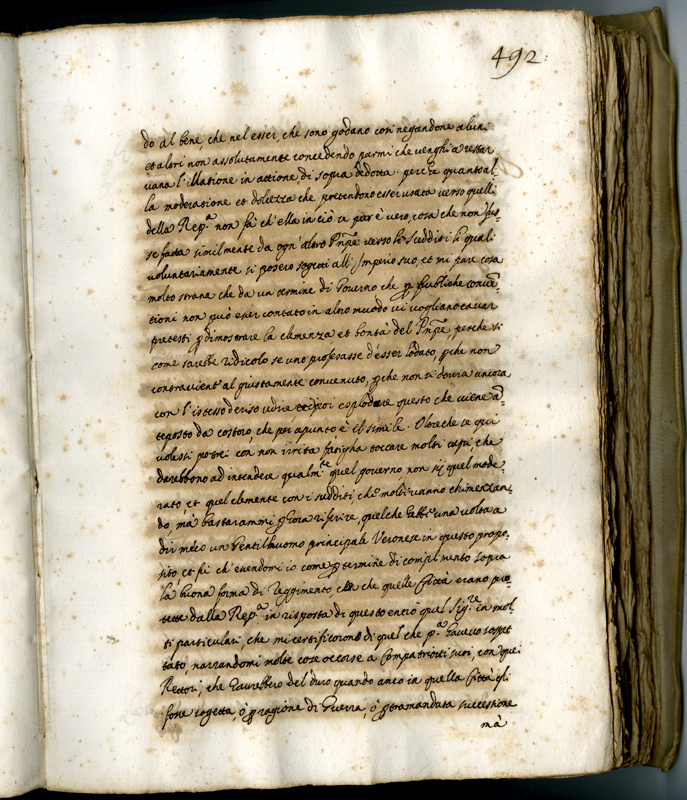 492
do al bene, che nel esser, che sono godano con negandone alun.
et altri non assolutamente concedendo parmi che venghi a restar
vana l'illatione in attione, di sopra dedotta perche quanto al
la moderatione et dolcezza che pretendono esser usata verso quelli
della Rep.a non fà ch'ella in ciò se pur è vero, cosa che non fos=
se fatta similmente da ogn'altro Pñpe verso le sudditi li quali
voluntariamente si posero sogetti all'Imperio suo, et mi pare cosa
molto strana che da un termine di Governo che p publiche conven=
tioni non può esser contato in altro muodo vi vogliano cavar
pretesti p dimostrare la clemenza et bontà del Pñpe, perche si
come sarebbe ridicolo se uno professasse d'esser lodato, pche non
contraviene al giustamente convenuto, pche non si dovrà ancora
con l'istesso udire et questo che viene a=
teposto da costoro, che per apunto è il simile. Oltreche se qui
volessi potrei con non trita fatigha toccare molti capi che
darebbono ad intendere qualm.te quel governo non sij quel mode=
rato et quel clemente con i sudditi che molti vanno chimerizan=
do, mà bastarammi p hora riferire, quelche hebbe una volta a
dir meco un Gentilhuomo principale Veronese in questo propo=
sito, et fù ch'havendomi io come p termine di complimento sopra
la buona forma di reggimento, che quelle Città erano pro
tette dalla Rep.a in risposta di questo entrò quel Sig.re in mol
ti particulari, che mi certificorono di quel che p.a havevo sospet
tato, narrandomi molte cose occorse a Compatrioti suoi, con quei
Rettori, che haurebbero del duro quando anco in quella Città gli
fosse sogetta, ò p ragione di Guerra, ò p tramandata successione
mà